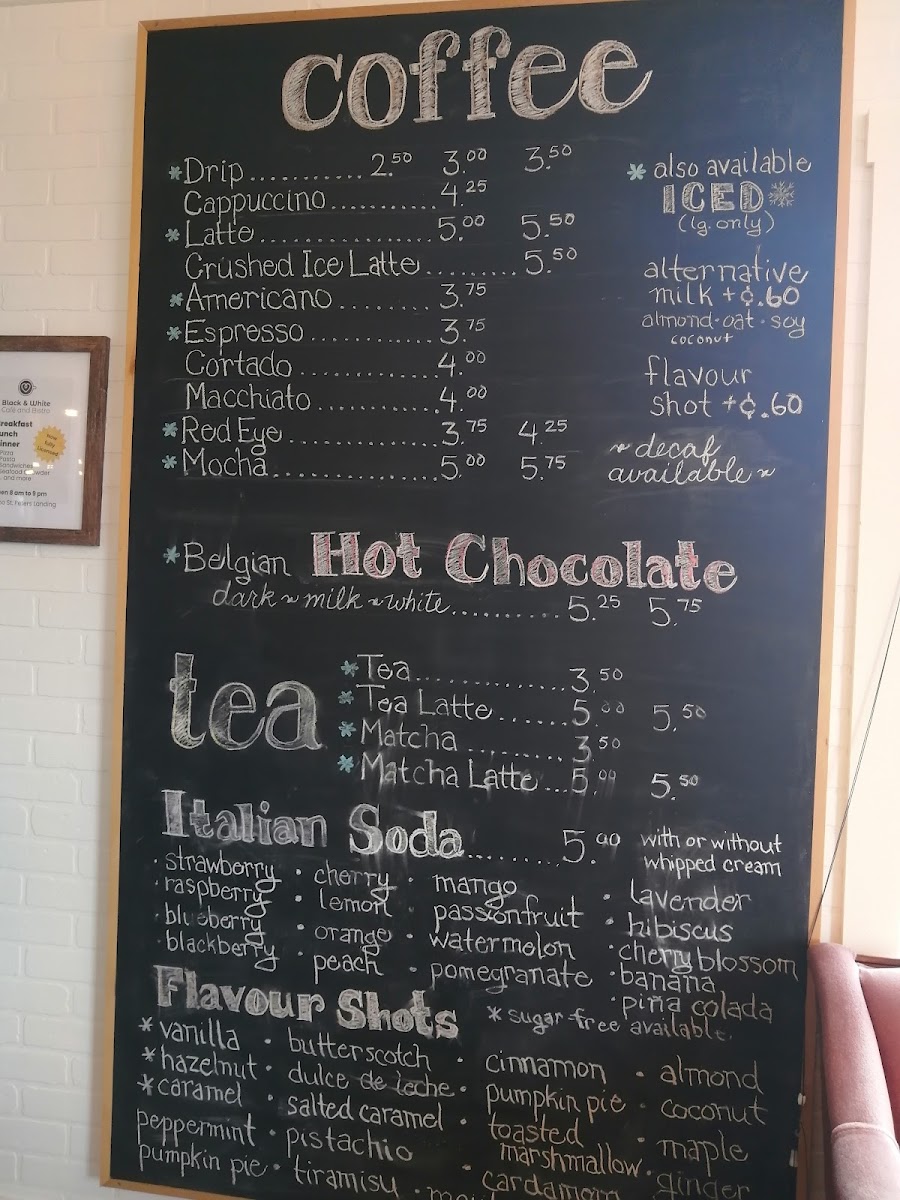 coffee
* Drip............ 2.50 3.00 3.50
Cappuccino........... 4.25
* Latte.................. 5.00 5.50
Crushed Ice Latte.......... 5.50
* Americano ......... 3.75
* Espresso ............. 3.75
Cortado .............. 4.00
Macchiato ............ 4.00
* Red Eye ............... 3.75 4.25
* Mocha................. 5.00 5.75
* also available
ICED
(lg. only)
alternative
milk + ¢.60
almond · oat · soy
coconut
flavour
shot + ¢.60
~ decaf
available ~
* Belgian Hot Chocolate
dark ~ milk ~ white........... 5.25 5.75
tea
* Tea................ 3.50
* Tea Latte....... 5.00 5.50
* Matcha .......... 3.50
* Matcha Latte... 5.00 5.50
Italian Soda......... 5.00 with or without
whipped cream
· strawberry · cherry · mango · lavender
· raspberry · lemon · passionfruit · hibiscus
· blueberry · orange · watermelon · cherry blossom
· blackberry · peach · pomegranate · banana
· piña colada
Flavour Shots * sugar-free available.
* vanilla · butterscotch · cinnamon · almond
* hazelnut · dulce de leche · pumpkin pie · coconut
* caramel · salted caramel · toasted marshmallow · maple
peppermint · pistachio · cardamom · ginger
pumpkin pie · tiramisu
Black & White
Café and Bistro
reakfast
unch
inner
Pizza
Pasta
Sandwiches
Seafood Chowder
... and more
Now
Fully
Licensed
en 8 am to 8 pm
St. Peters Landing